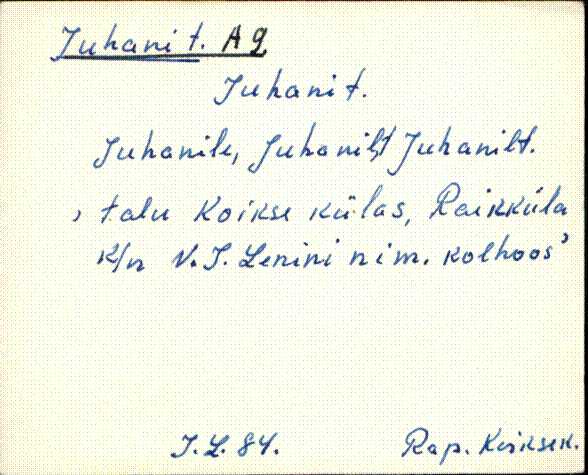 Juhani t. Ag
Juhani t.
Juhanile, Juhanilt Juhanilt.
, talu Koikse külas, Raikküla
K/n V. I. Lenini nim. kolhoos'
I. L. 84. Rap.